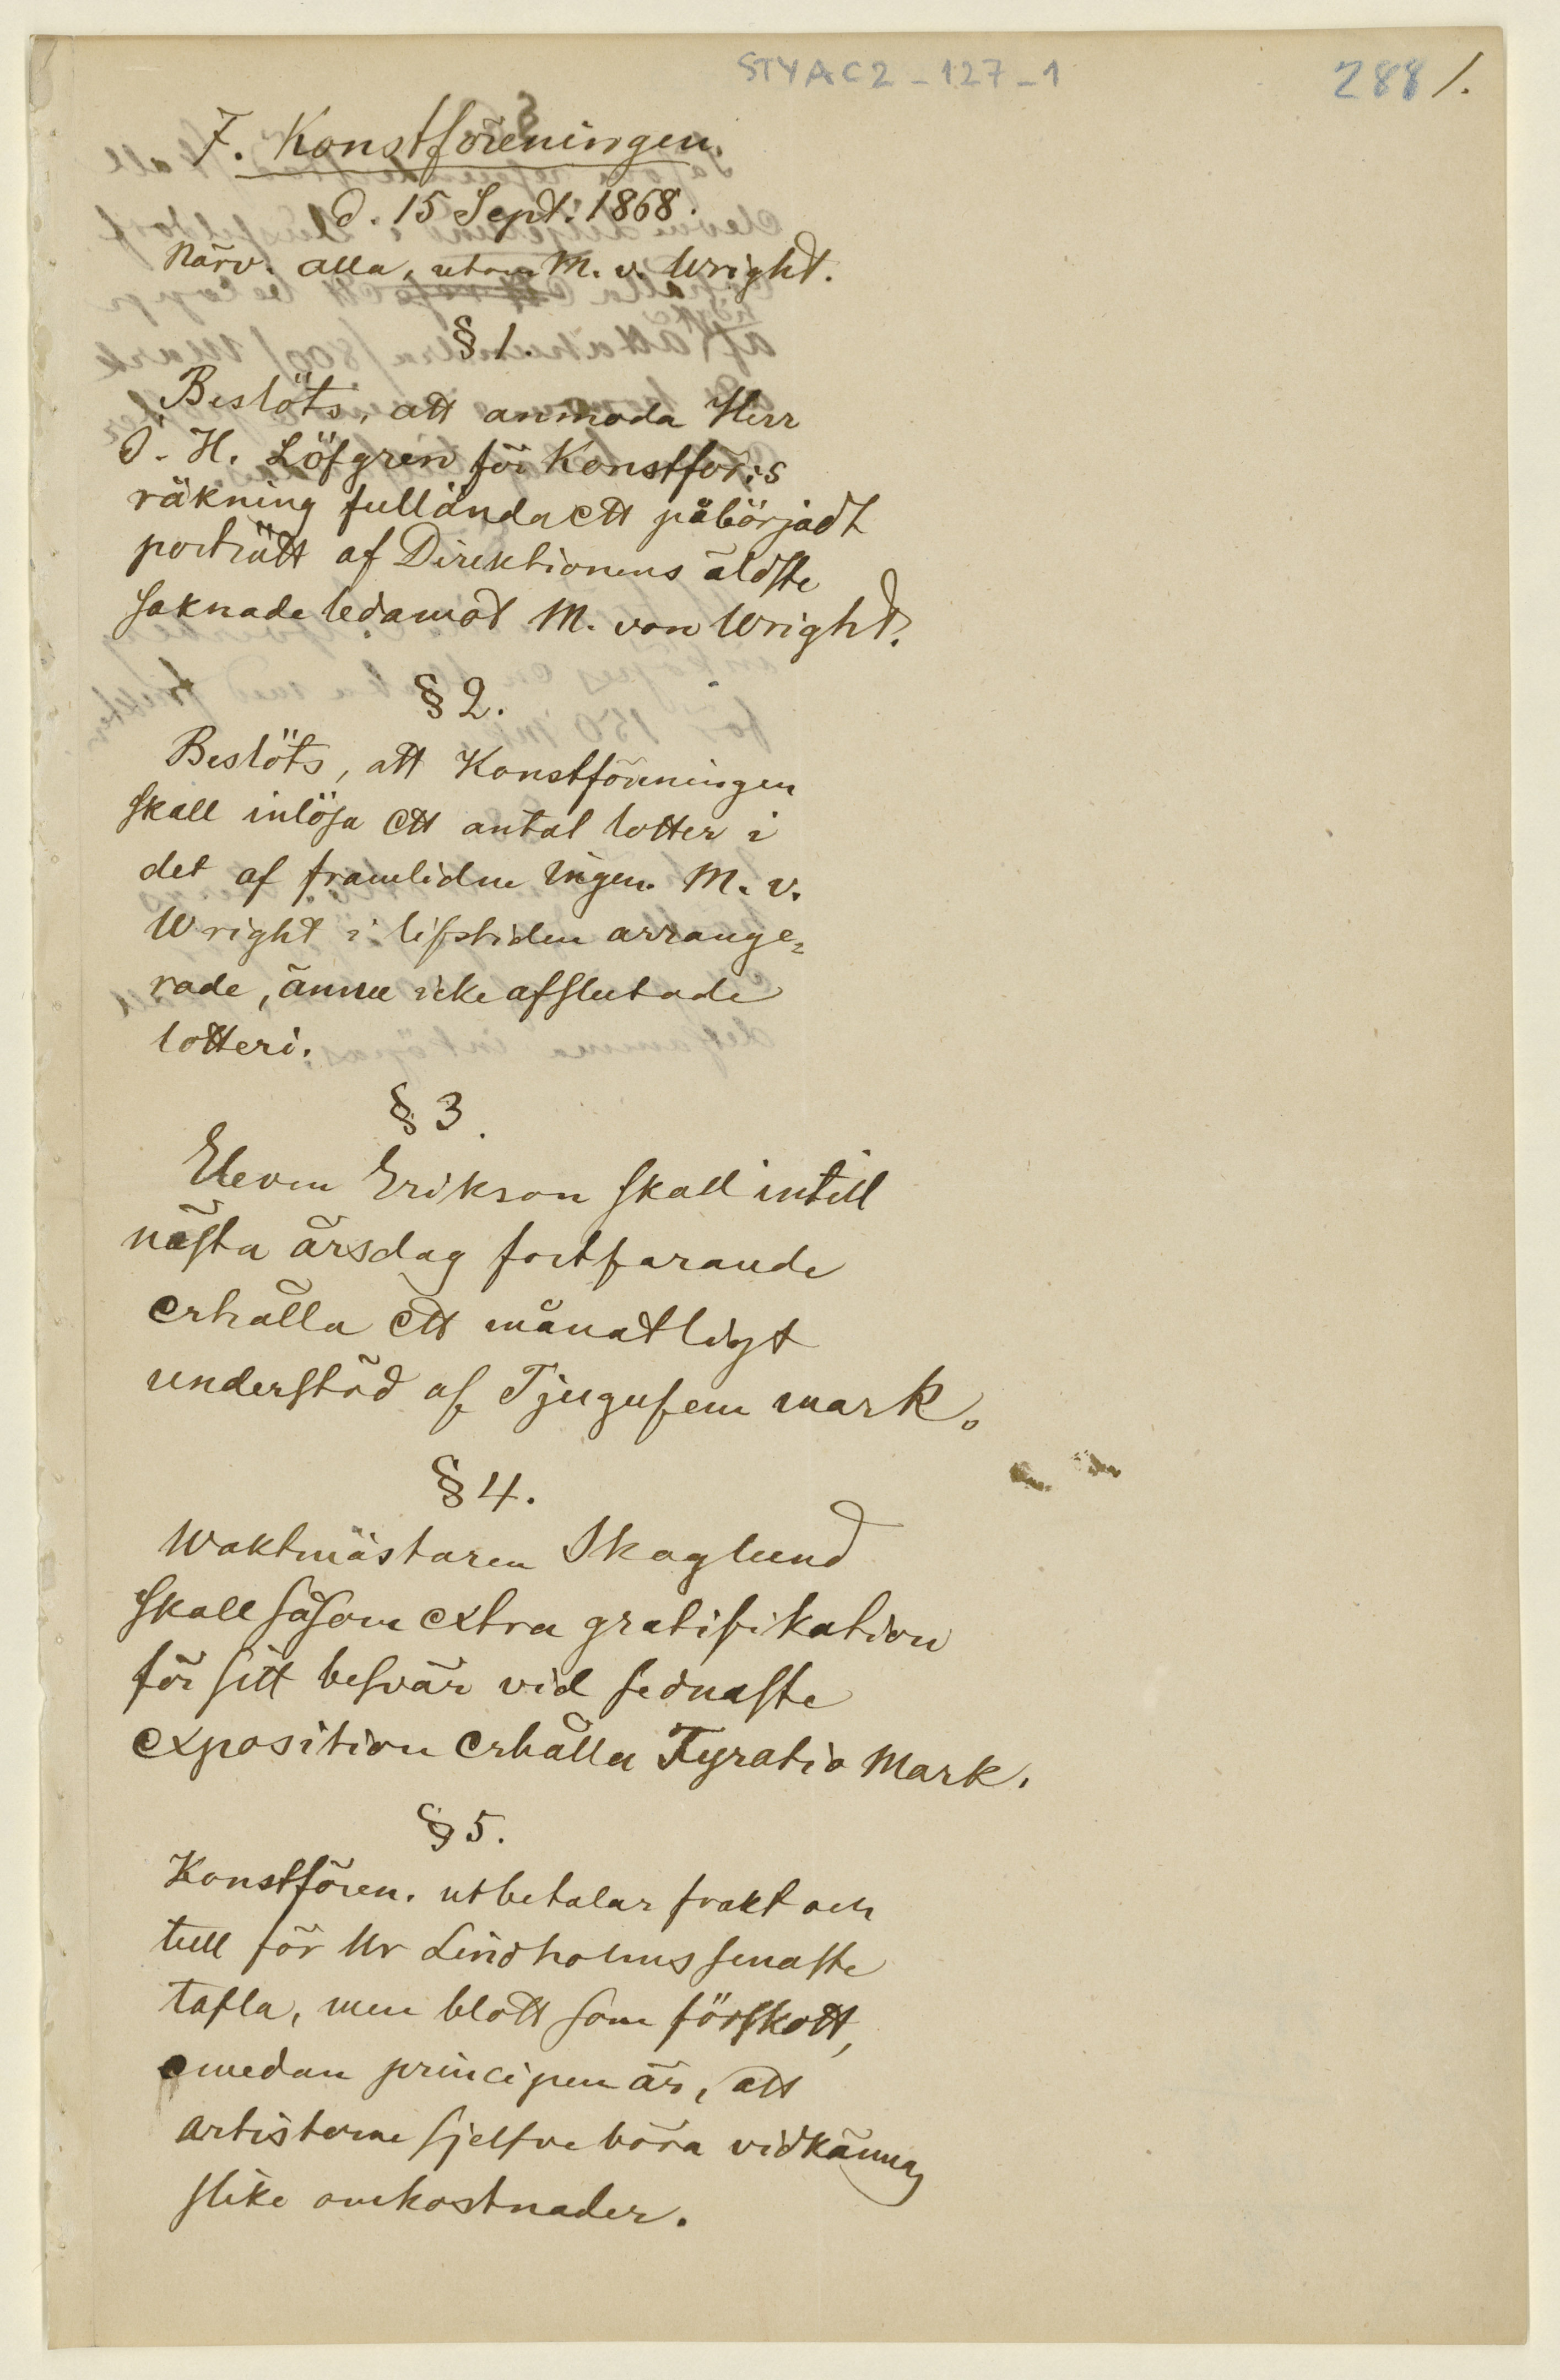 STYAC2-127-1
288 1.
F. Konstföreningen.
d. 15 Sept. 1868.
Närv. alla, utom M. v. Wright.
§ 1.
Beslöts, att anmoda Herr
J. H. Löfgren för Konstför:s
räkning fullända ett påbörjadt
porträtt af Direktionens äldste
saknade ledamot M. von Wright.
§ 2.
Beslöts, att Konstföreningen
skall inlösa ett antal lotter i
det af framlidne M. v.
Wright i lifstiden arrange=
rade, ännu icke afslutade
lotteri.
§ 3.
Eleven Erikson skall intill
nästa årsdag fortfarande
erhålla ett månatligt
understöd af Tjugufem mark.
§ 4.
Waktmästaren Skaglund
skall såsom extra gratifikation
för sitt besvär vid sednaste
exposition erhålla Fyratio Mark.
§ 5.
Konstfören. utbetalar frakt och
tull för Hr Lindholms senaste
tafla, men blott som förskott,
emedan principen är, att
artisterne sjelfve böra vidkännas
slike omkostnader.